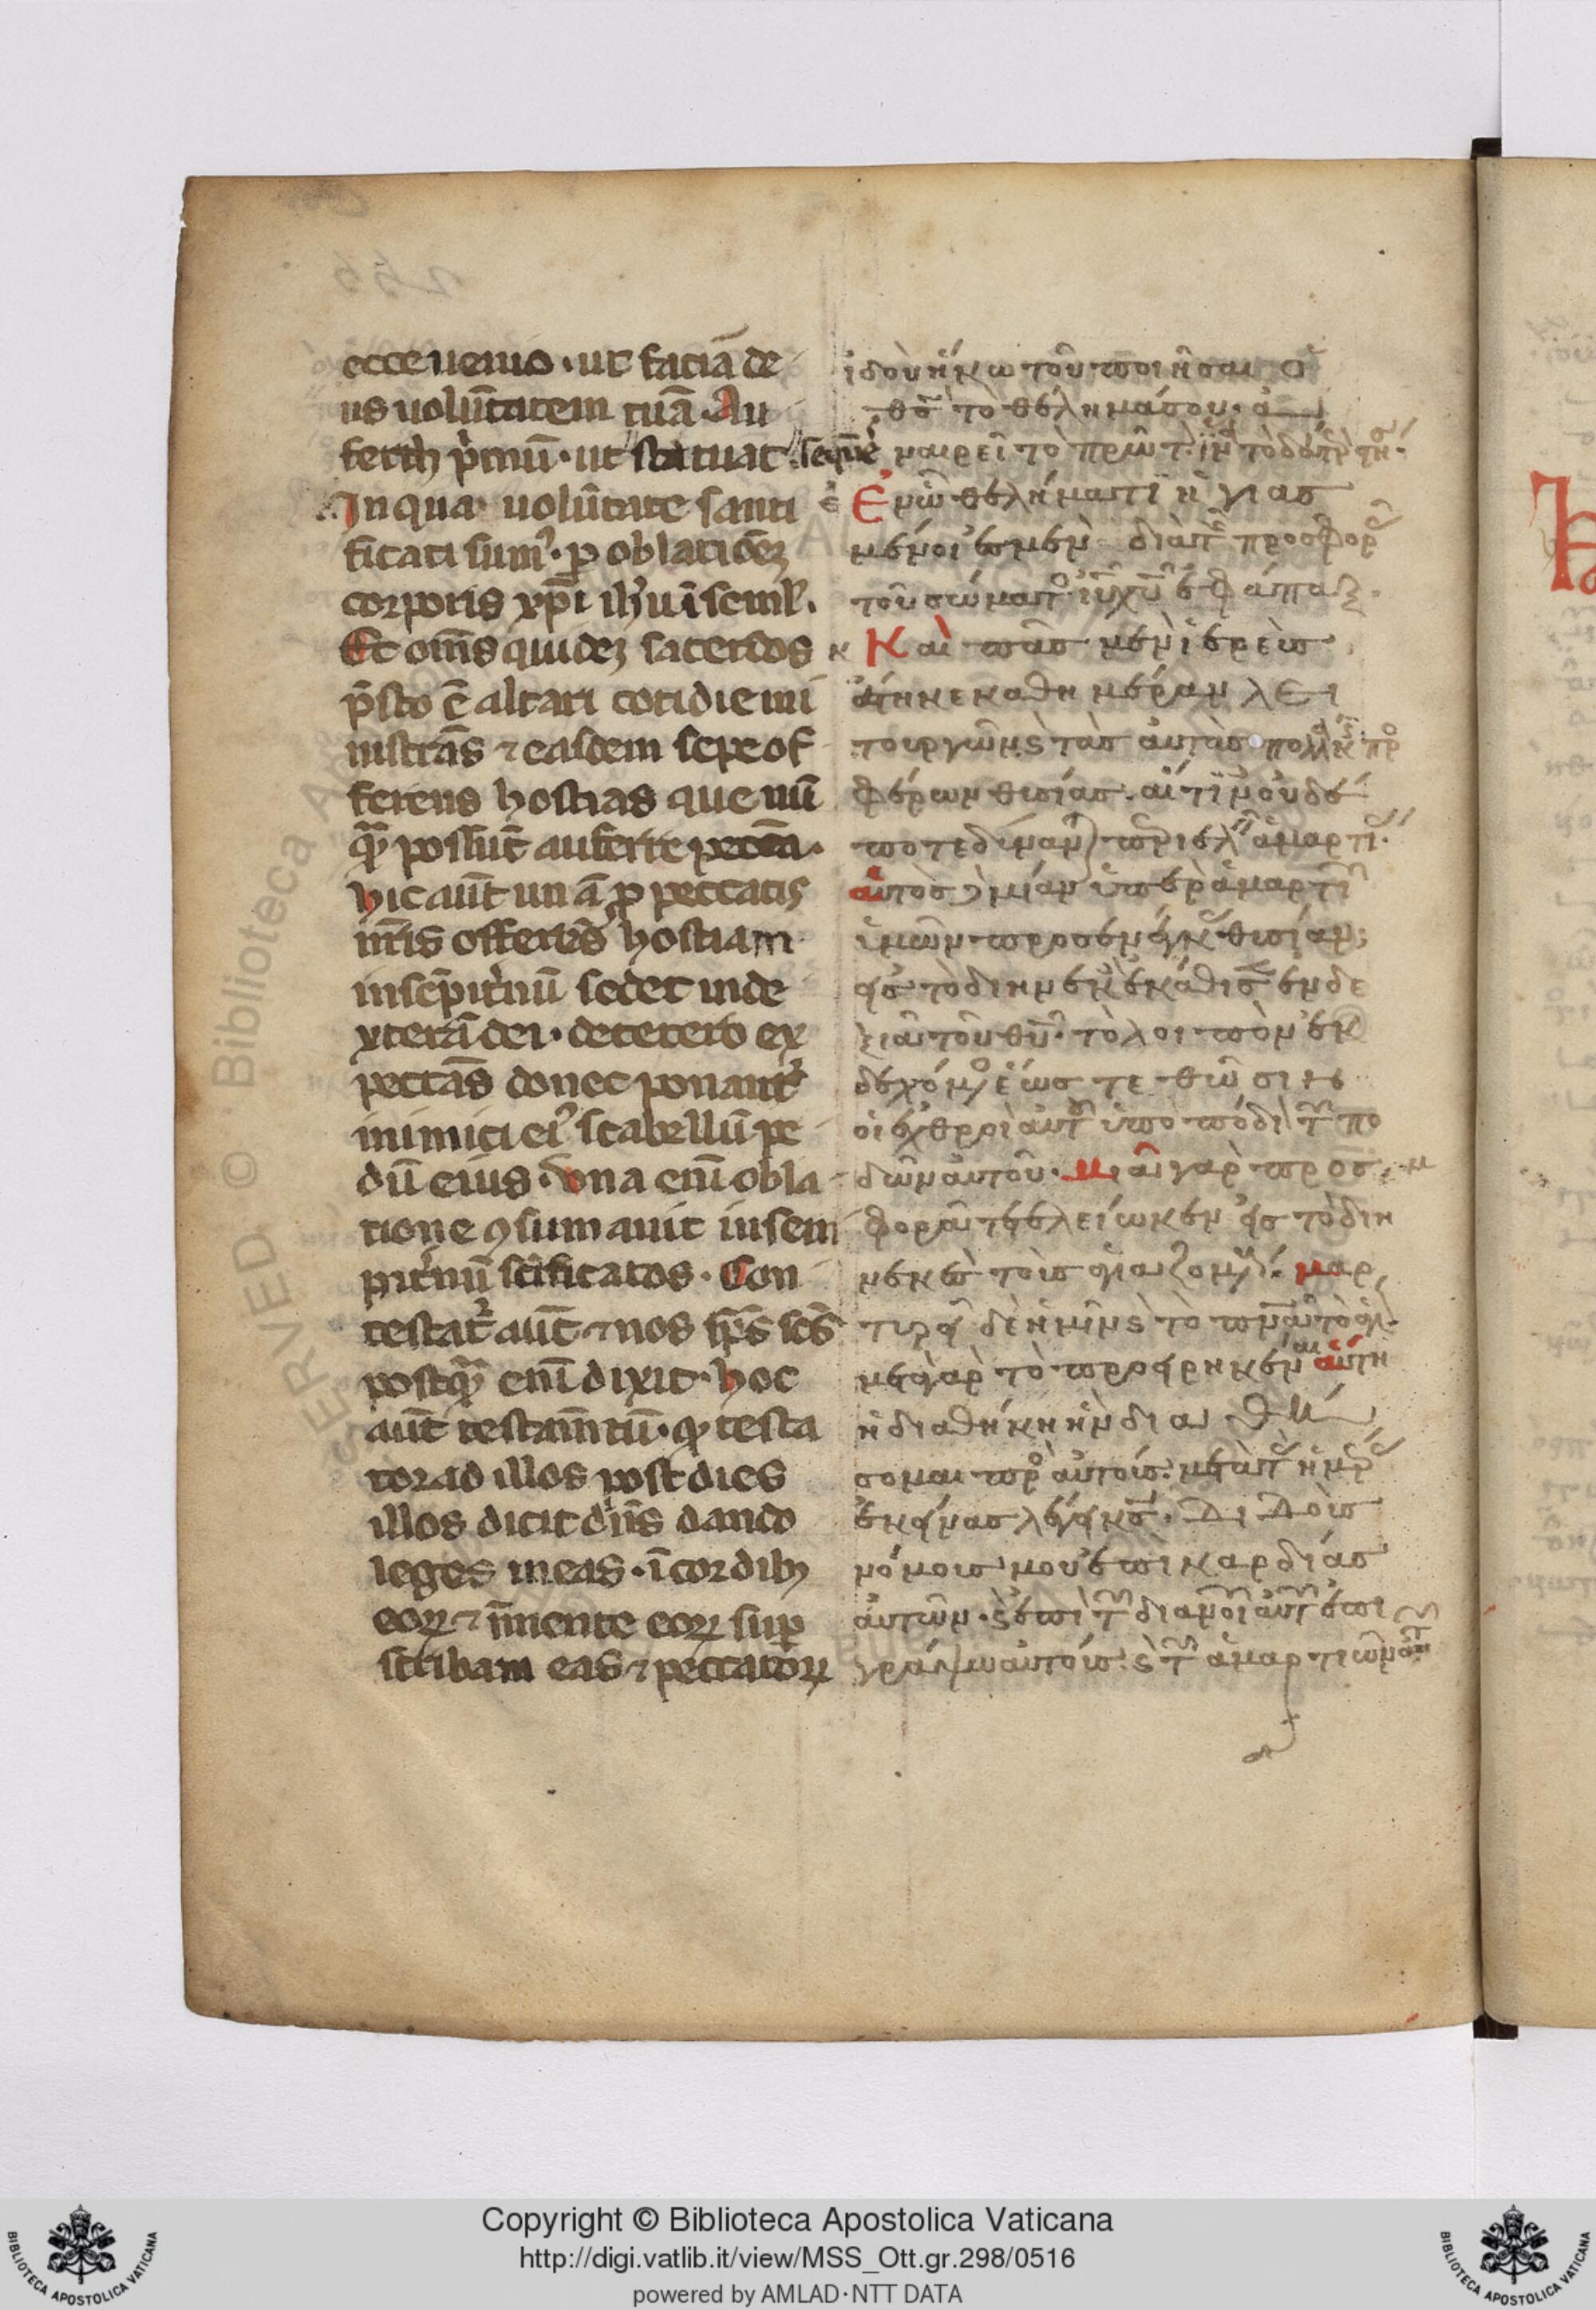 ecce uenio · ut faciā de
us uolūtatem tuā · Au
fert h p̄mū · ut statuat · seq̄ns
In qua uolūtate sancti
ficati sumꝰ · ꝑ oblationez
corporis xp̄i ih̄u ī semel ·
Et om̄s quidez sacerdos
p̄sto ē altari cotidie mi
nistrās ⁊ easdem sepe of
ferens hostias que nū
quā possūt auferre peccā ·
hic aūt unā ꝓ peccatis
nr̄is offerēs hostiam
in sēpit̄nū sedet in de
xterā dei · de cetero ex
pectās donec ponantur
inimici eiꝰ scabellū pe
dū eius · Vna enī obla
tione ꝯsumauit in sem
pit̄nū sc̄ificatos · Con
testat̄ aūt ⁊ nos sp̄s sc̄s
postquā enī dixit · hoc
aūt testam̄tū · qd testa
bor ad illos post dies
illos dicit dn̄s dando
leges meas · ī cordibꝫ
eoꝝ ⁊ ī mente eoꝝ suꝑ
scribam eas ⁊ peccatoꝝ
ἰδοὺ ἥκω τοῦ ποιῆσαι ὁ
θς̄ τὸ θέλημά σου · ἀ
ναιρεῖ τὸ πρῶτ
Ἐν ᾧ θελήματι ἡγιασ
μένοι ἐσμὲν διὰ τῆς προσφορ
τοῦ σώματος ιυ χυ ἐφάπαξ ·
Καὶ πᾶς μὲν ἱερεὺς
ἕστηκε καθημέραν λει
τουργῶν ϛ τὰς αὐτὰς πολλκ πρ
φέρων θυσίας · αἵτινες οὐδέ
ποτε δύναν περιελ ἁμαρτί
αὐτὸς μίαν ὑπὲρ ἁμαρτι
ἡμῶν προσενέγκ θυσίαν
εἰς τὸ διηνεκὲς ἐκάθισεν ἐν δε
ξιᾷ τοῦ θυ · τὸ λοιπὸν ἐκ
δεχόμ ἕως τεθῶσιν
οἱ ἐχθροὶ αὐτ ὑποπόδι τ πο
δῶν αὐτοῦ · μιᾷ γὰρ προσ
φορᾷ τετελείωκεν εἰς τὸ διη
νεκὲς τοὺς ἁγιαζομ · μαρ
τυρεῖ δὲ ἡμῖν ϛ τὸ πνα τὸ ἅγι
με γὰρ τὸ προειρηκέναι αὕτη
ἡ διαθήκη ἣν διαθή
σομαι πρ αὐτούς · μετὰ τ ἡμρ
ἐκείνας λέγει κς · Διδοὺς
νόμους μου ἐπὶ καρδίας
αὐτῶν · ϛ ἐπὶ τ διανοι αὐτ ἐπι
γράψω αὐτούς · ϛ τ ἁμαρτιῶν αὐτ
Copyright © Biblioteca Apostolica Vaticana
http://digi.vatlib.it/view/MSS_Ott.gr.298/0516
powered by AMLAD·NTT DATA
BIBLIOTECA APOSTOLICA VATICANA
BIBLIOTECA APOSTOLICA VATICANA